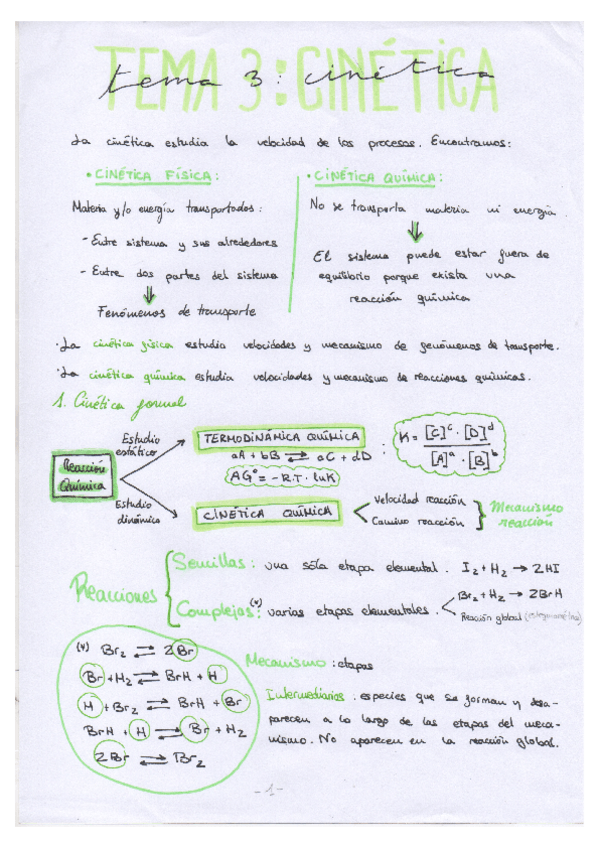 TEMA 3: CINÉTICA
tema 3: cinética
La cinética estudia la velocidad de los procesos. Encontramos:
• CINÉTICA FÍSICA:
Materia y/o energía transportados:
- Entre sistema y sus alrededores
- Entre dos partes del sistema
Fenómenos de transporte
• CINÉTICA QUÍMICA:
No se transporta materia ni energía.
El sistema puede estar fuera de
equilibrio porque exista una
reacción química
• La cinética física estudia velocidades y mecanismo de fenómenos de transporte.
• La cinética química estudia velocidades y mecanismo de reacciones químicas.
1. Cinética formal
Reacción
Química
Estudio
estático
TERMODINÁMICA QUÍMICA :
aA + bB ⇌ cC + dD
ΔG° = -R.T. lnK
K = [C]^c · [D]^d / [A]^a · [B]^b
Estudio
dinámico
CINÉTICA QUÍMICA
Velocidad reacción
Camino reacción
Mecanismo
reacción
Reacciones
Sencillas: una sóla etapa elemental. I2 + H2 → 2HI
Complejas:(*) varias etapas elementales.
Br2 + H2 → 2BrH
Reacción global (estequiométrica)
(*) Br2 ⇌ 2Br
Br + H2 ⇌ BrH + H
H + Br2 ⇌ BrH + Br
BrH + H ⇌ Br + H2
2Br ⇌ Br2
Mecanismo: etapas
Intermediarios: especies que se forman y desa-
parecen a lo largo de las etapas del meca-
nismo. No aparecen en la reacción global.
-1-